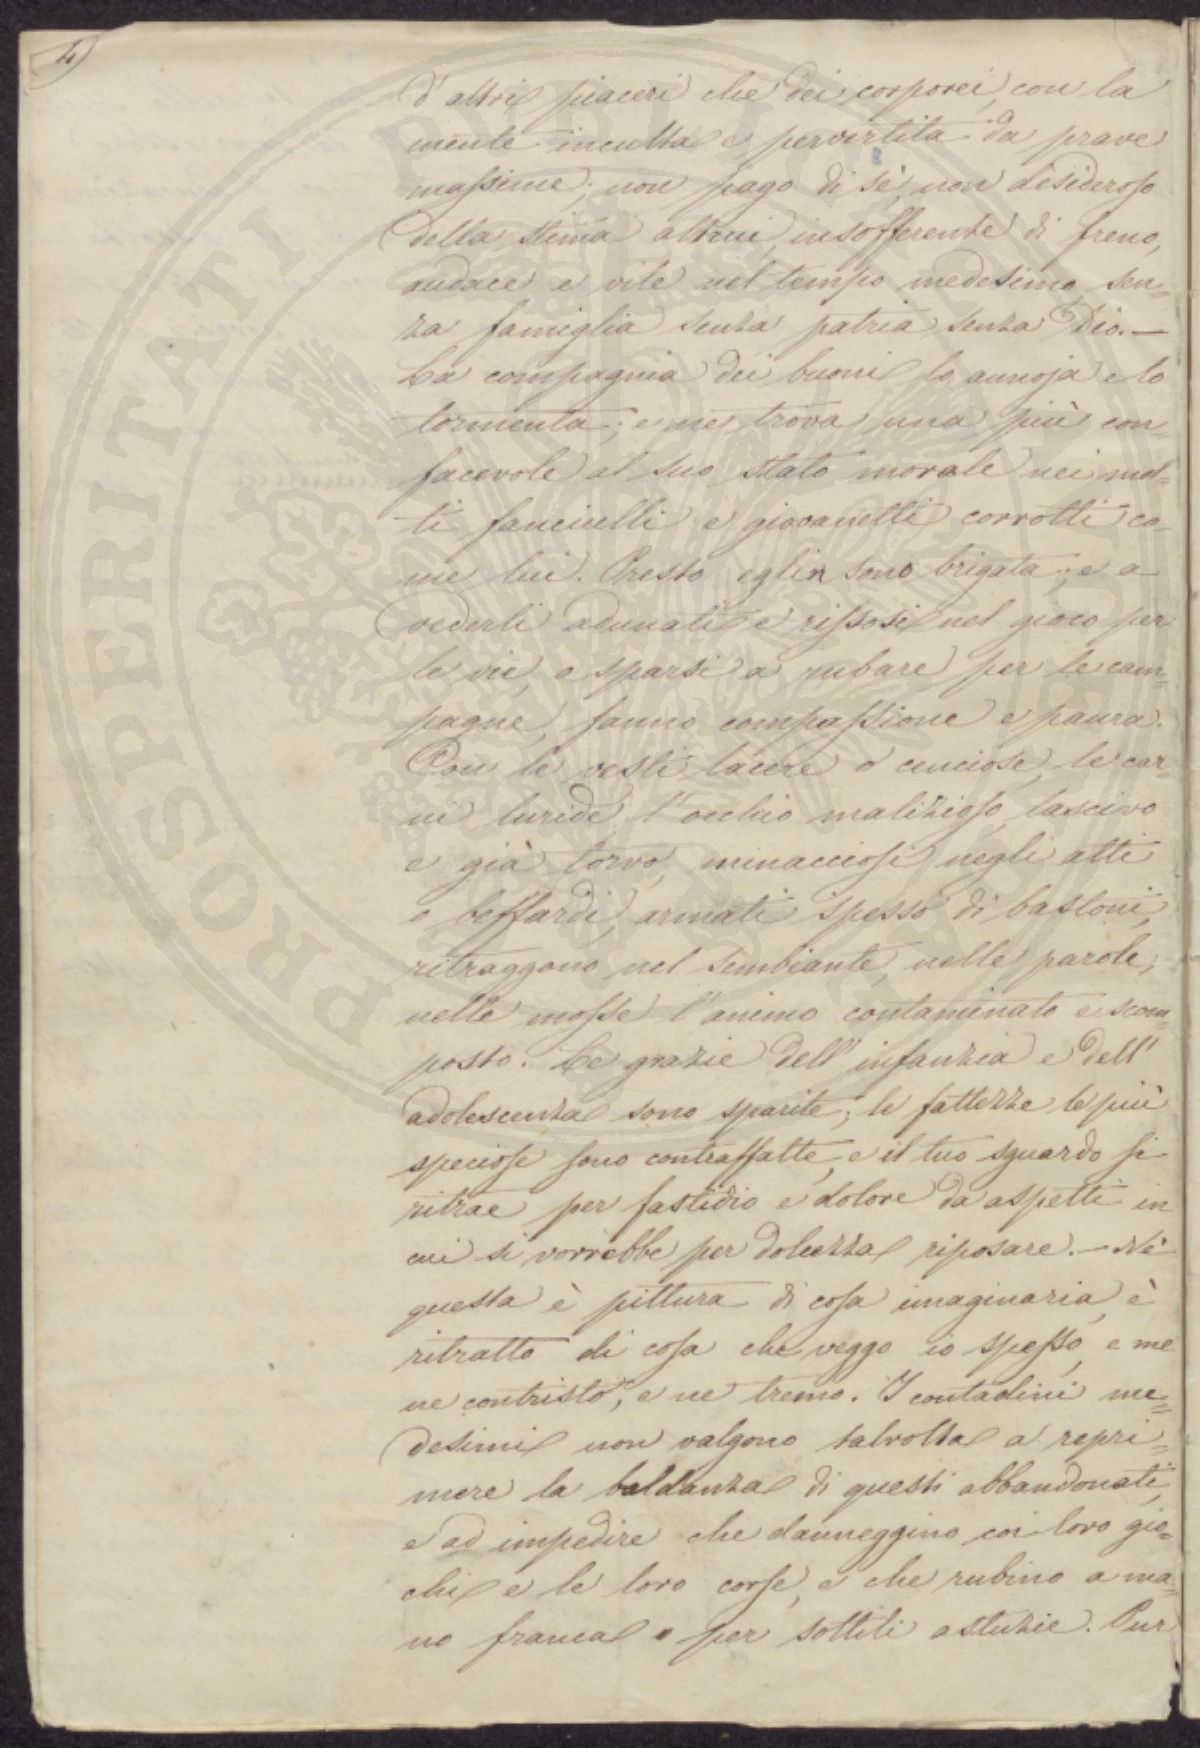 4)
d'altri piaceri che dei corporei, con la
mente inculta e pervertita da prave
massime; non pago di sè, non desideroso
della stima altrui, insofferente di freno,
audace e vile nel tempo medesimo sen=
za famiglia senza patria senza Dio. —
La compagnia dei buoni lo annoja e lo
tormenta; e ne trova una più con=
facevole al suo stato morale nei mol=
ti fanciulli e giovanetti corrotti co=
me lui. Presto eglin sono brigata; e a
vederli adunati e rissosi nel gioco per
le vie, o sparsi a rubare per le cam=
pagne, fanno compassione e paura.
Con le vesti lacere o cenciose, le car=
ni luride, l'occhio malizioso, lascivo
e già torvo, minacciosi negli atti
e beffardi, armati spesso di bastoni,
ritraggono nel sembiante, nelle parole,
nelle mosse l'animo contaminato e scom=
posto. Le grazie dell'infanzia e dell'
adolescenza sono sparite; le fattezze le più
speciose sono contraffatte, e il tuo sguardo si
ritrae per fastidio e dolore da aspetti in
cui si vorrebbe per dolcezza riposare. — Nè
questa è pittura di cosa imaginaria, è
ritratto di cosa che veggo io spesso, e me
ne contristo, e ne tremo. I contadini me=
desimi non valgono talvolta a repri=
mere la baldanza di questi abbandonati,
e ad impedire che danneggino coi loro gio=
chi e le loro corse, e che rubino a ma=
no franca o per sottili astuzie. Pur
PROSPERITATI PUBLICAE